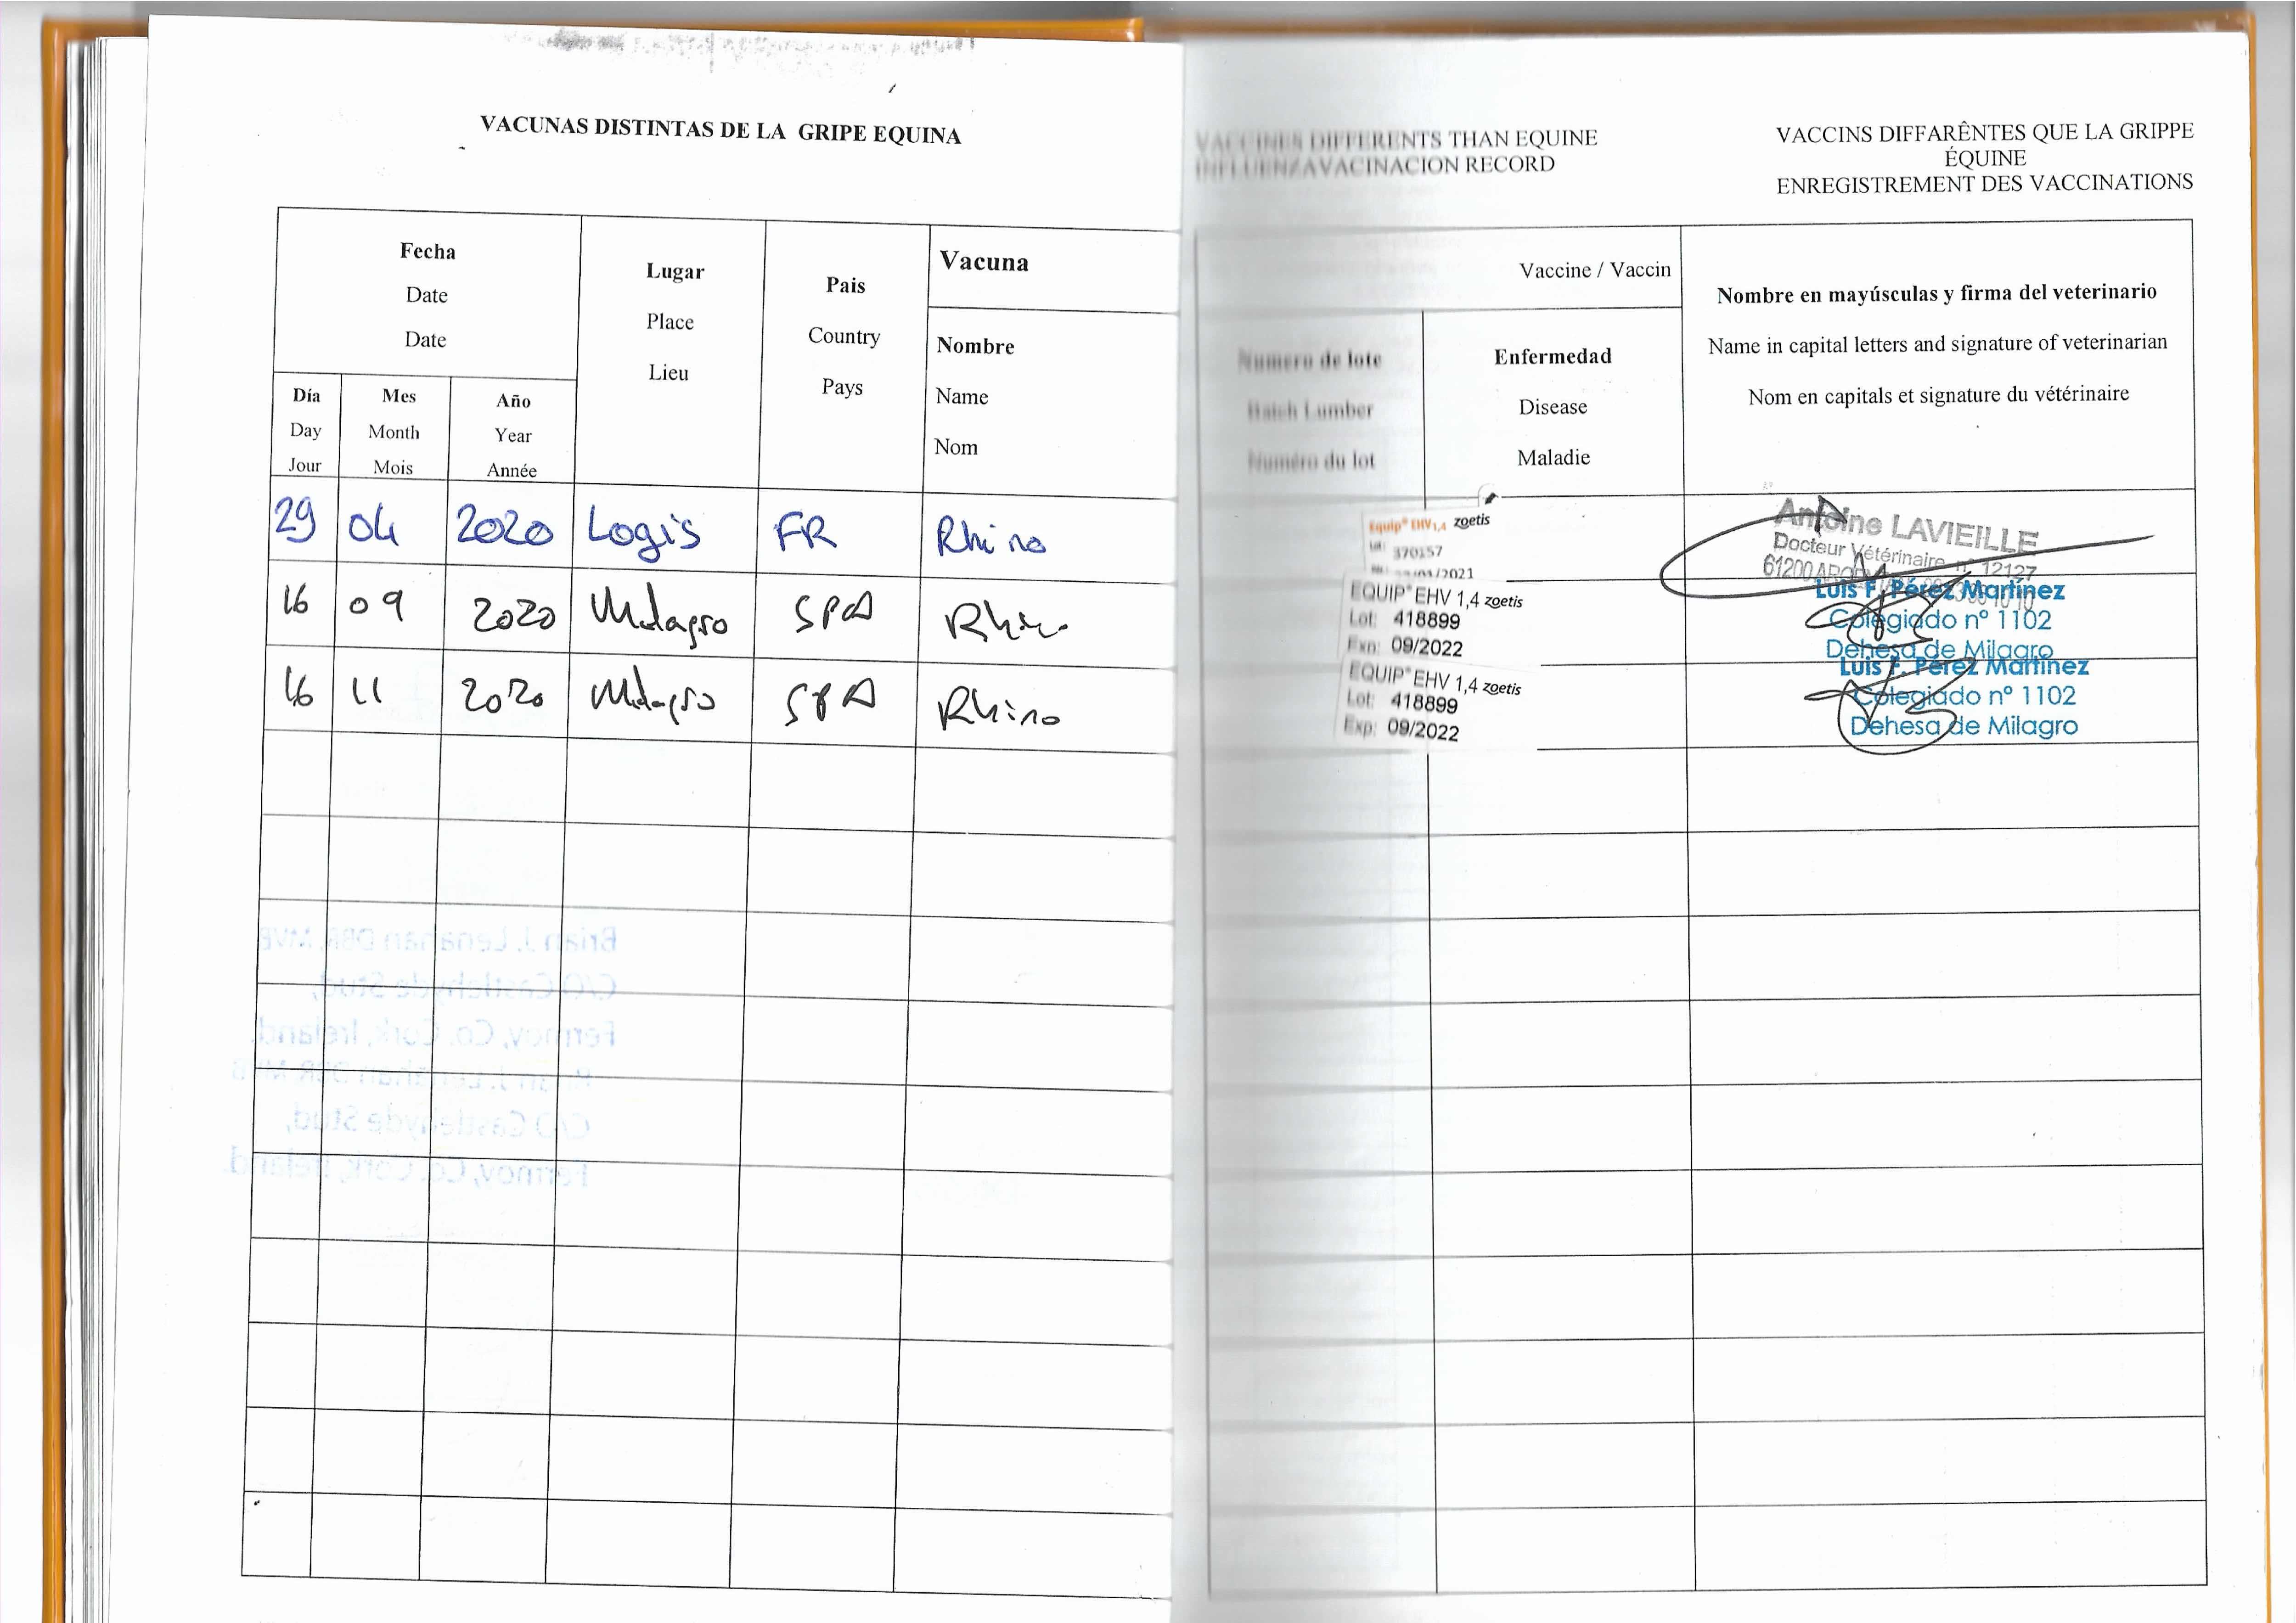 VACUNAS DISTINTAS DE LA GRIPE EQUINA
Fecha
Date
Date
Día
Day
Jour
Mes
Month
Mois
Año
Year
Année
Lugar
Place
Lieu
Pais
Country
Pays
Vacuna
Nombre
Name
Nom
29 04 2020 Logis FR Rhino
16 09 2020 Milagro SPA Rhino
16 11 2020 Milagro SPA Rhino
VACCINES DIFFERENTS THAN EQUINE
INFLUENZAVACINACION RECORD
VACCINS DIFFARÊNTES QUE LA GRIPPE
ÉQUINE
ENREGISTREMENT DES VACCINATIONS
Vaccine / Vaccin
Numero de lote
Batch Lumber
Numéro du lot
Enfermedad
Disease
Maladie
Nombre en mayúsculas y firma del veterinario
Name in capital letters and signature of veterinarian
Nom en capitals et signature du vétérinaire
Equip® EHV 1,4 zoetis
370157
/2021
Antoine LAVIEILLE
Docteur Vétérinaire n° 12127
61200
EQUIP® EHV 1,4 zoetis
Lot: 418899
Exp: 09/2022
Luis F. Pérez Martínez
Colegiado nº 1102
Dehesa de Milagro
EQUIP® EHV 1,4 zoetis
Lot: 418899
Exp: 09/2022
Luis F. Pérez Martínez
Colegiado nº 1102
Dehesa de Milagro
Brian J. Lenahan DBR. MVB
C/O Castlehyde Stud,
Fermoy, Co. Cork, Ireland.
Brian J. Lenahan DBR. MVB
C/O Castlehyde Stud,
Fermoy, Co. Cork, Ireland.